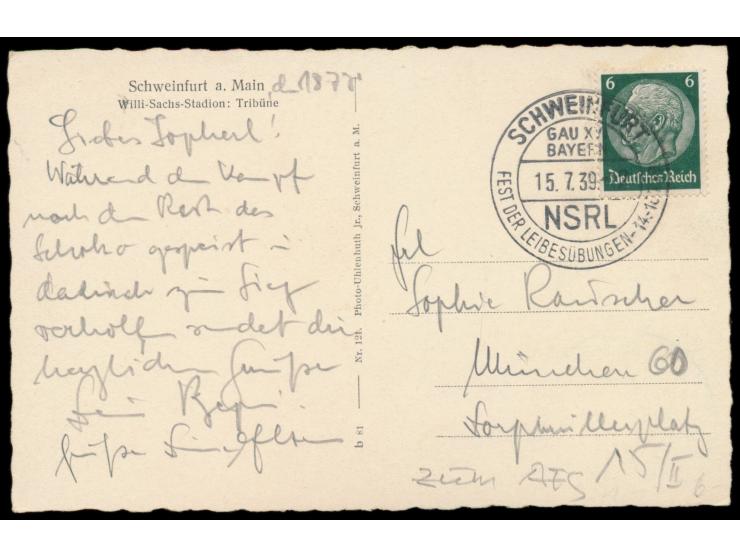 Schweinfurt a. Main
Willi-Sachs-Stadion: Tribüne
Liebes Sopherl!
Während dem Kampf
noch den Rest des
Schoko gespeist u
dadurch zum Sieg
verholfen sendet die
herzlichen Grüße
Dein
Grüße
b 81 — Nr. 121. Photo-Uhlenhuth jr., Schweinfurt a. M.
SCHWEINFURT
GAU XVI
BAYERN
15.7.39
NSRL
FEST DER LEIBESÜBUNGEN
6 6
Deutsches Reich
Frl
Sophie Rauscher
München 60
15/II
zum
6-